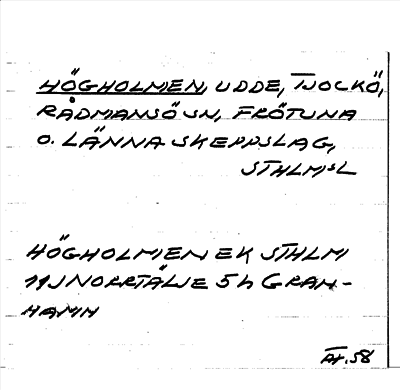 HÖGHOLMEN, UDDE, TJOCKÖ,
RÅDMANSÖ SN, FRÖTUNA
O. LÄNNA SKEPPSLAG,
STHLMSL
HÖGHOLMEN EK STHLM
11J NORRTÄLJE 5h GRAN-
HAMN